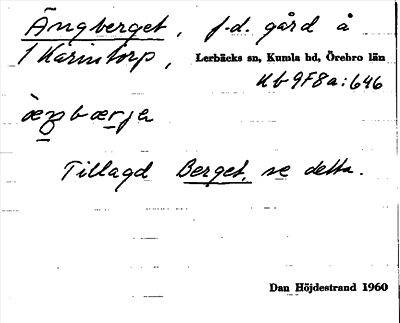 Ängberget, f.d. gård å
1 Karintorp, Lerbäcks sn, Kumla hd, Örebro län
Kb 9F8a:646
Tillagd Berget, se detta.
Dan Höjdestrand 1960